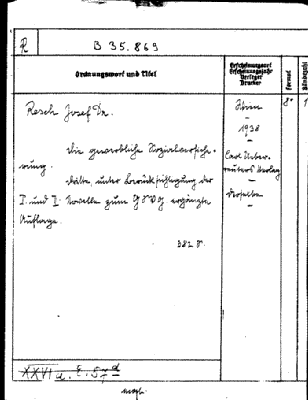 R
B 35.869
Ordnungswort und Titel
Erscheinungsort
Erscheinungsjahr
Verleger
Drucker
Format
Bändezahl
Resch Josef Dr.
Wien
8°
1
–
1938
–
Die gewerbliche Sozialversiche-
rung.
Carl Ueber-
reuters Verlag
–
unter Berücksichtigung der
derselbe
I. und II. Novelle zum GSVG ergänzte
Auflage.
382 S.
XXVI